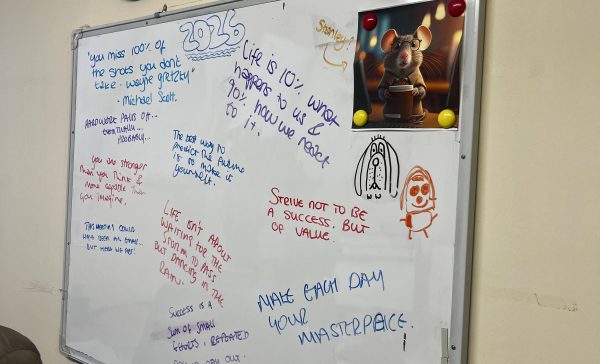 2026
"you miss 100% of
the shots you don't
take - wayne gretzky"
- Michael Scott.
Life is 10% what
happens to us &
90% how we react
to it.
Stanley!
HARD WORK PAYS OFF...
EVENTUALLY...
PROBABLY...
The best way to
predict the future
is to make it
yourself.
You are stronger
than you think &
more capable than
you imagine.
THIS MEETING COULD
HAVE BEEN AN EMAIL...
BUT HERE WE ARE!
LIFE ISN'T ABOUT
WAITING FOR THE
STORM TO PASS
BUT DANCING IN THE
RAIN.
STRIVE NOT TO BE
A SUCCESS, BUT
OF VALUE.
SUCCESS IS A
SUM OF SMALL
EFFORTS, REPEATED
DAY OUT.
MAKE EACH DAY
YOUR
MASTERPIECE.